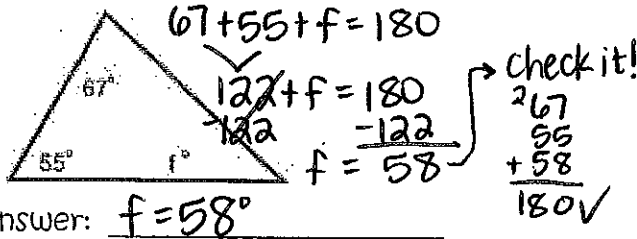 67+55+f=180
67°
55°
f°
122+f=180
-122 -122
f = 58
check it!
²67
55
+58
180✓
nswer: f=58°